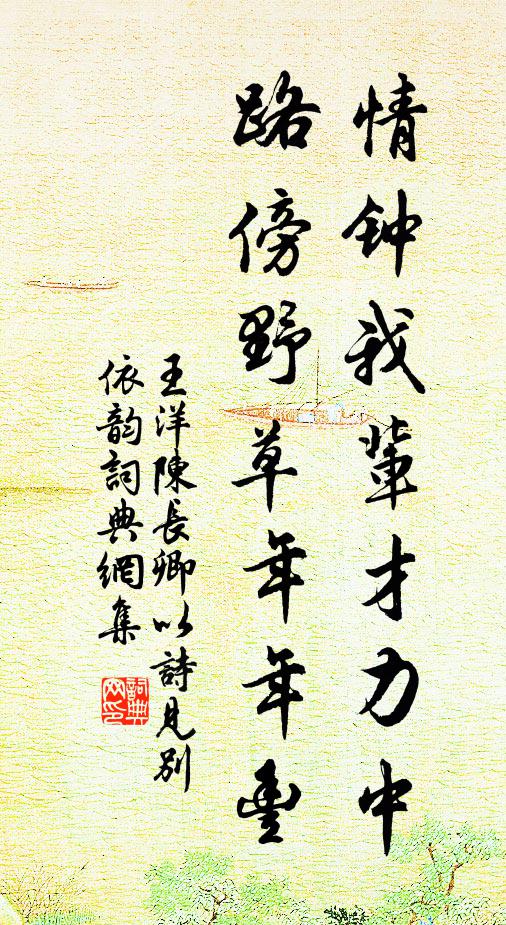 情钟我輩才力中
路傍野草年年豐
王洋陳長卿以詩見别
依韵詞典網集
詞典
网印